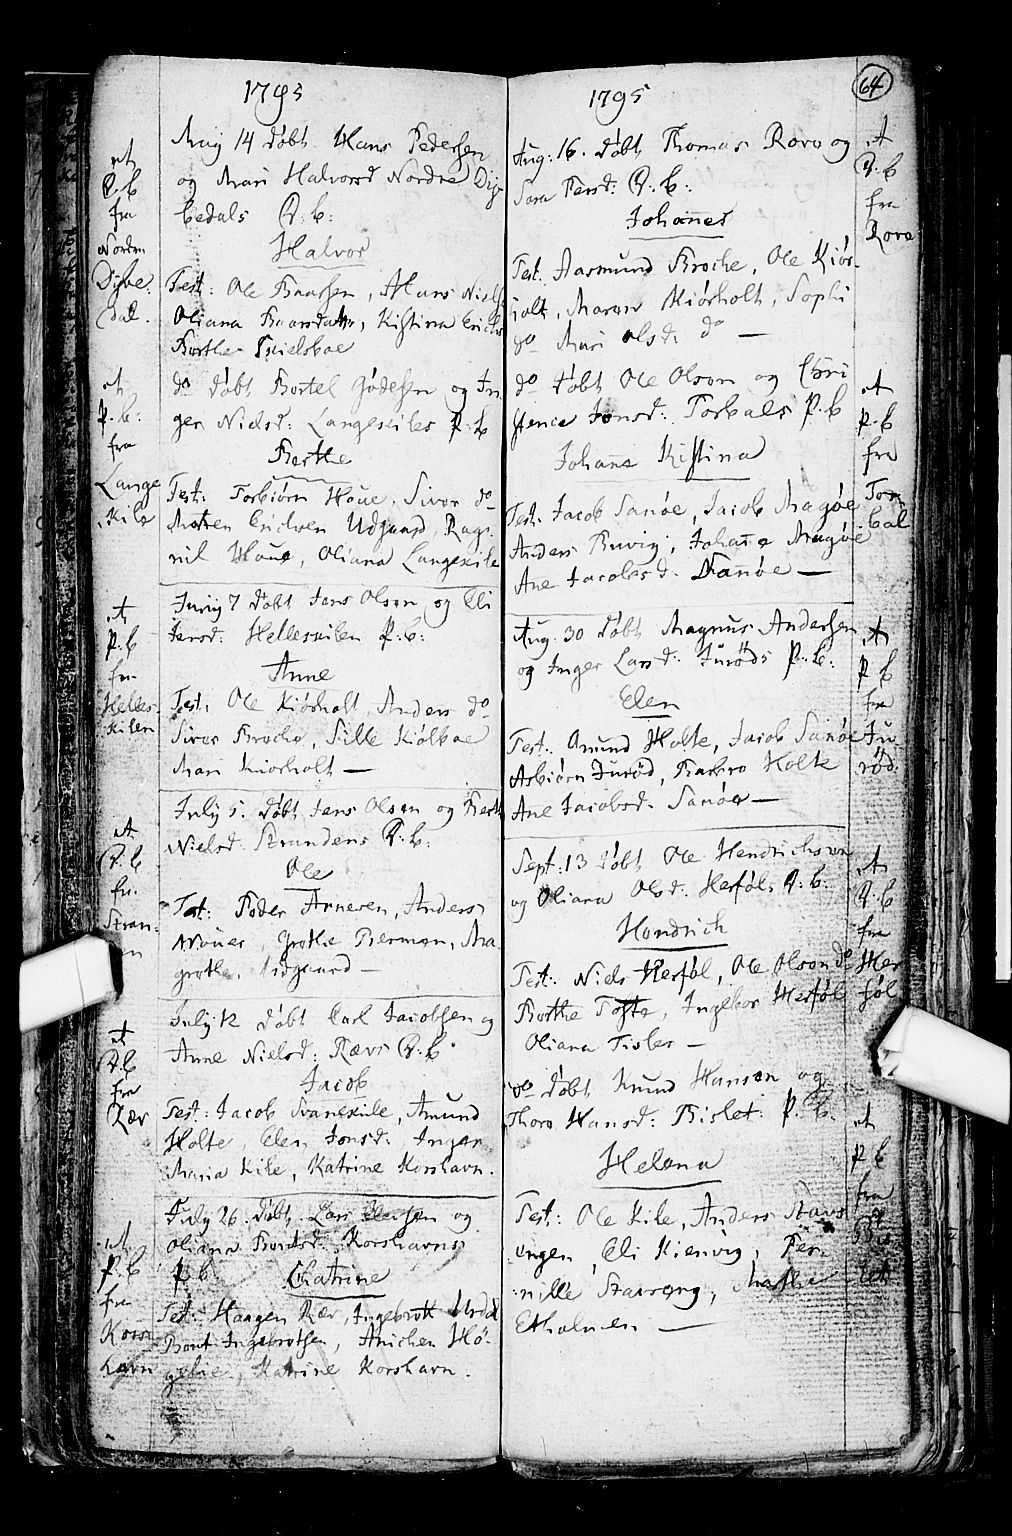 1795
et
D.b
fra
Nordre
Dybe:
dal.
May 14 døbt Hans Pedersen
og Mari Halvorsd Nordre Dy
bedals D:b:
Halvor
Test: Ole Baarsen, Hans Niels
Oliana Baarsdatr, Kistina Erichs
Berthe
et
P.b:
fra
Lange
kile
do døbt Bertel Gødesen og In
ger Nielsd: Langekiles P.b
Berthe
Test: Torbiørn Houe, Siver do
Maren Erichsen Udgaard, Rag:
nil Houe, Oliana Langekile
et
P.b
fra
Helles
kilen
Juny 7 døbt Jens Olsen og Eli
Jensd: Helleskilen P.b:
Anne
Test: Ole Kiørholt, Anders do
Siver Broche, Sille Kiølboe
Mari Kiørholt —
et
D.b
fra
Stran-
en
July 5. døbt Jens Olsen og Berth
Nielsd. Strandens D.b.
Ole
Test: Peder Arnesen, Anders
Grethe Berman, Ma
grethe, Udgaard —
et
D.b
fra
Kær
July 12 døbt Carl Jacobsen og
Anne Nielsd: Kærs D.b.
Jacob
Test: Jacob Svanekile, Amund
Holte, Elen Jonsd: Inger
Maria Kile, Katrine Korshavn.
et
P.b
fra
Kors
havn
July 26. døbt Lars Olensen og
Oliana Berntsd: Korshavns
P.b. Chatrine
Test: Haagen Kær, Ingebrett Urdal
Bernt Ingebretsen, Anichen Hø-
gelie, Katrine Korshavn.
1795
64
Aug: 16. døbt Thomas Rove og
Sara Persd: D.b:
Johannes
Test: Aasmund Broche, Ole Kiør-
holt, Maren Kiørholt, Sophi
do Mari Olsd: do —
et
D.b
fra
Rove
do døbt Ole Olsen og Chri
stence Jensd: Torbals P.b
Johanne Kistina
Test: Jacob Sanøe, Jacob Magøe
Anders Buvig, Johanne Magøe
Ane Jacobsd. Sanøe —
et
P.b
fra
Tor
bal
Aug: 30 døbt Magnus Andersen
og Inger Larsd: Jurøds P.b:
Elen
Test: Amund Holte, Jacob Sanøe
Asbiørn Jurød, Barbro Holte
Ane Jacobsd. Sanøe —
et
P.b
fra
Ju-
rød.
Sept: 13 døbt Ole Hendrichsen
og Oliana Olsd. Herføl: D.b.
Hendrich
Test: Niels Herføl, Ole Olsen do
Berthe Tofte, Ingebor Herføl
Oliana Tisler —
et
D.b
fra
Her
føl
do døbt Knud Hansen og
Thore Hansd: Bislet: P.b.
Helena
Test: Ole Kile, Anders Stavs
engen, Eli Kienvig, Per
nille Stavseng, Marthe
Etholmen —
et
P.b
fra
Bis
let